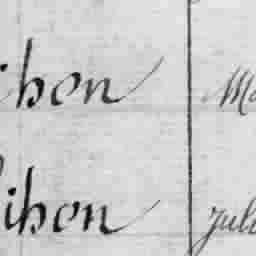 ihon Ma
ihon Jule